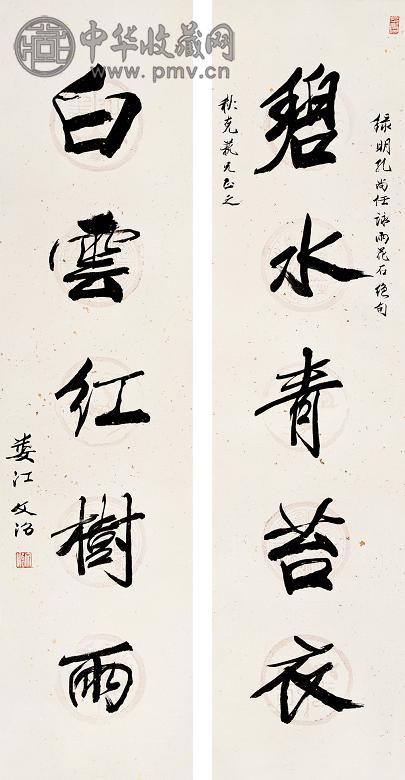 中华收藏网
www.pmv.cn
録明孔尚任詠雨花石绝句
碧水青苔衣
兄正之
白雲红樹雨
婁江文治